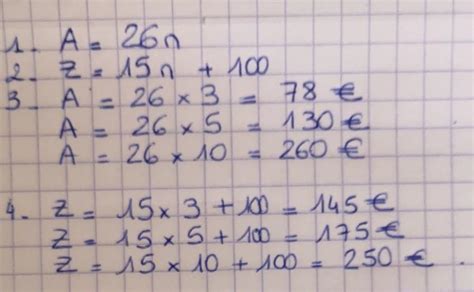 1- A = 26n
2- Z = 15n + 100
3- A = 26 × 3 = 78 €
A = 26 × 5 = 130 €
A = 26 × 10 = 260 €
4- Z = 15 × 3 + 100 = 145 €
Z = 15 × 5 + 100 = 175 €
Z = 15 × 10 + 100 = 250 €